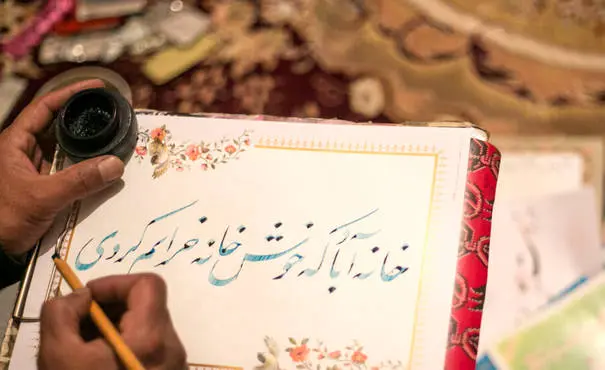 خانه آباد که خوش خانه خرابم کردی